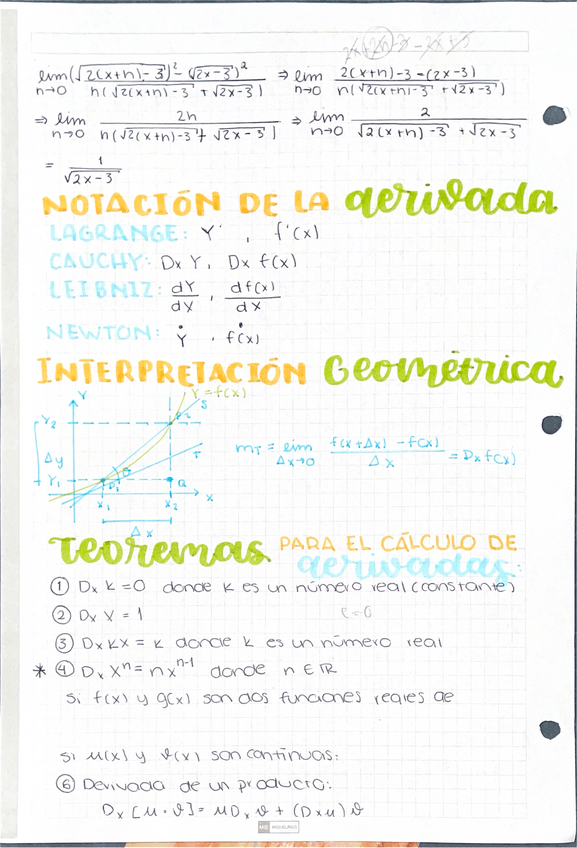 lim n→0 (√2(x+n)-3)² - (√2x-3)² / n(√2(x+n)-3 + √2x-3) ⇒ lim n→0 2(x+n)-3-(2x-3) / n(√2(x+n)-3 + √2x-3)
⇒ lim n→0 2n / n(√2(x+n)-3 + √2x-3) ⇒ lim n→0 2 / √2(x+n)-3 + √2x-3
= 1 / √2x-3
NOTACIÓN DE LA derivada
LAGRANGE: Y' , f'(x)
CAUCHY: Dx Y, Dx f(x)
LEIBNIZ: dY/dX , df(x)/dx
NEWTON: Ẏ , ḟ(x)
INTERPRETACIÓN Geométrica
Y
Y=f(x)
S
Y2
T
Δy
Y1
Q
x
x1 x2
Δx
mT = lim Δx→0 f(x+Δx)-f(x) / Δx = Dx f(x)
Teoremas PARA EL CÁLCULO DE
derivadas:
① Dx K=0 donde K es un número real (constante)
② Dx X = 1
③ Dx KX = K donde K es un número real
* ④ Dx Xⁿ = nxⁿ⁻¹ donde n∈ℝ
Si f(x) y g(x) son dos funciones reales de
si μ(x) y ϑ(x) son continuas:
⑥ Derivada de un producto:
Dx [μ·ϑ] = μDx ϑ + (Dxμ)ϑ